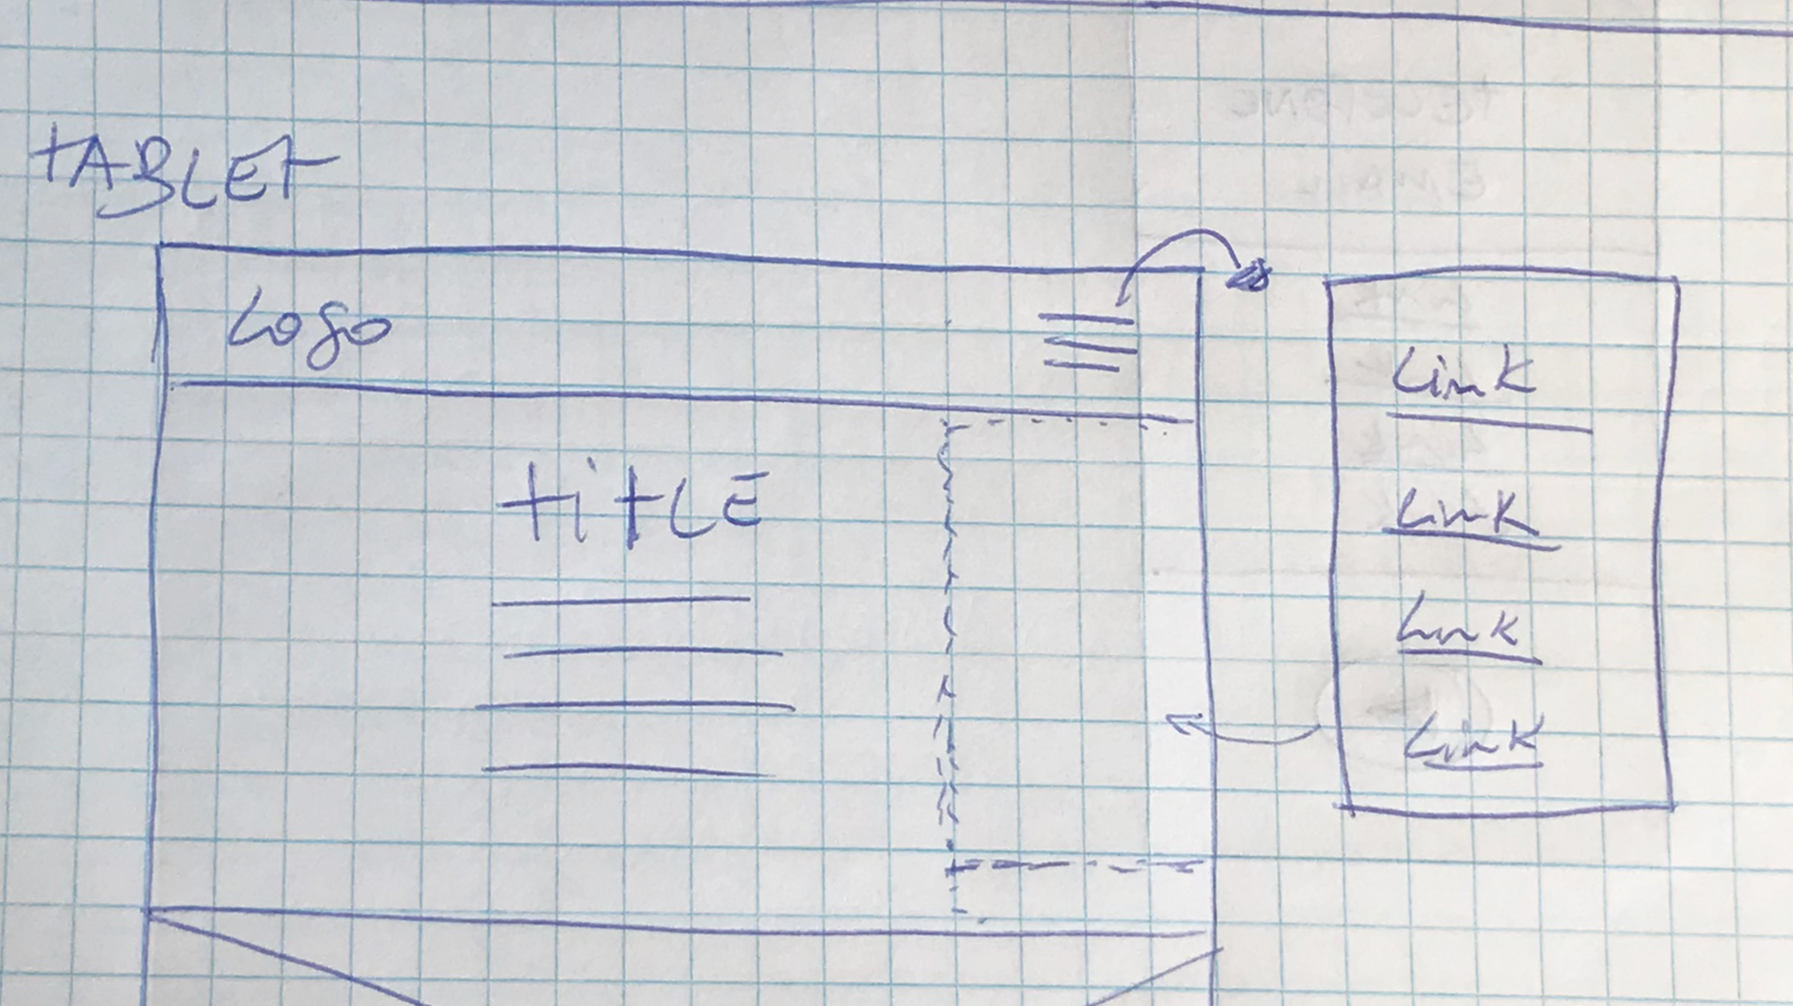 TABLET
Logo
TITLE
Link
Link
Link
Link